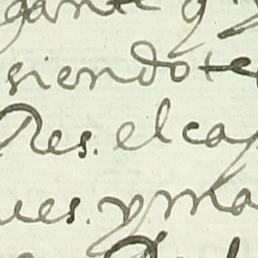 gante y
siendote
Res. el cap
ues. y ma